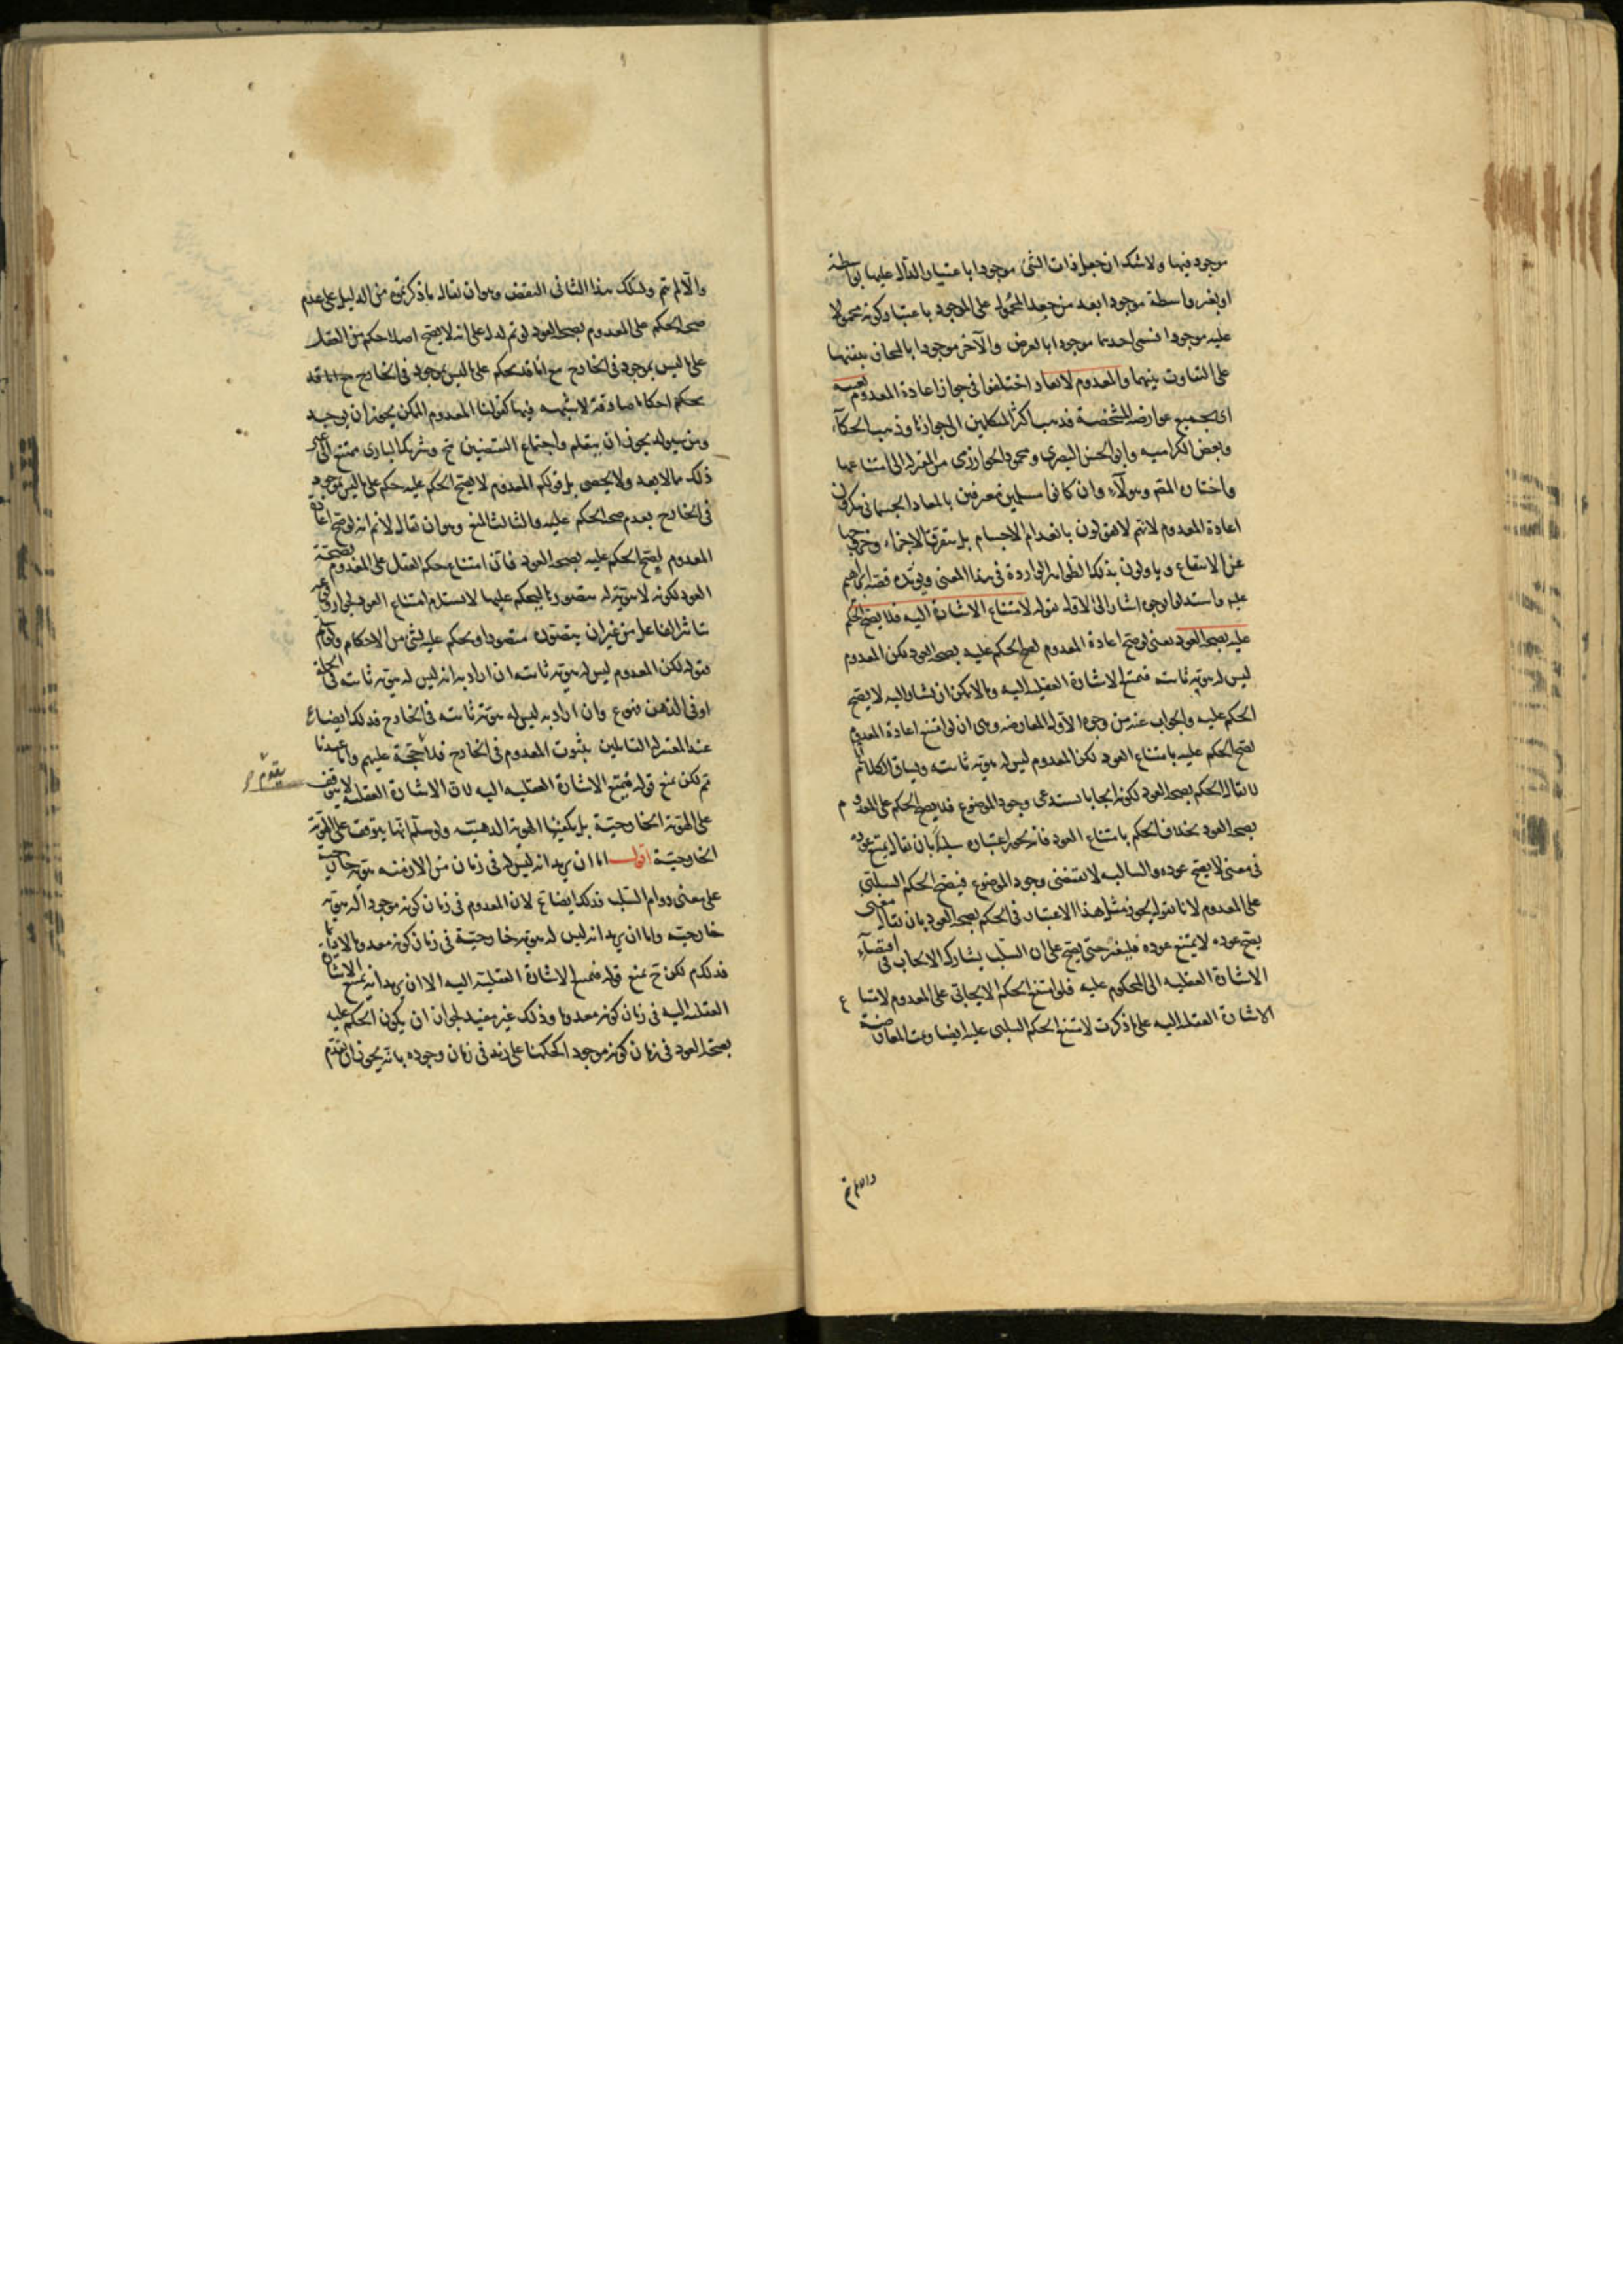 موجود فيها ولا شك ان جعل ذات الشئ موجودا باعتبار الدال عليها بواسطة
او بغير واسطة موجودا بعد من جعل المحمول على الموجود باعتبار كونه محمولا
عليه موجودا فسمى احدهما موجودا بالعرض والآخر موجودا بالمجاز تنبيها
على التفاوت بينهما والمعدوم لا يعاد اختلفوا فى جواز اعادة المعدوم بعينه
اى بجميع عوارضه المشخصة فذهب اكثر المتكلمين الى جوازها وذهب الحكماء
وبعض الكرامية وابو الحسن البصرى ومحمود الخوارزمى من المعتزلة الى امتناعها
واختاره المقم وهولآء وان كانوا مسلمين معترفين بالمعاد الجسمانى ينكرون
اعادة المعدوم لانهم لا يقولون بانعدام الاجسام بل بتفرق الاجزاء وخروجها
عن الانتفاع و ياولون بذلك الظواهر الواردة فى هذا المعنى ويؤيده قصة ابراهيم
عليه واستدلوا بوجوه اشار الى الاول بقوله لامتناع الاشارة اليه فلا يصح الحكم
عليه بصحة العود يعنى لو صح اعادة المعدوم لصح الحكم عليه بصحة العود لكن المعدوم
ليس له هوية ثابتة فيمتنع الاشارة العقلية اليه وما لا يمكن ان يشار اليه لا يصح
الحكم عليه والجواب عنه من وجوه الاول المعارضة وهى ان لو امتنع اعادة المعدوم
لصح الحكم عليه بامتناع العود لكن المعدوم ليس له هوية ثابتة ويساق الكلام
لا يقال الحكم بصحة العود لكونه ايجابا يستدعى وجود الموضوع فلا يصح الحكم على المعدوم
بصحة العود بخلاف الحكم بامتناع العود فانه يجوز اعتباره سلبا بان يقال يمتنع عوده
فى معنى لا يصح عوده والسالبة لا تقتضى وجود الموضوع فيصح الحكم السلبى
على المعدوم لانا نقول يجوز مثل هذا الاعتبار فى الحكم بصحة العود بان يقال معنى
يصح عوده لا يمتنع عوده فليعتبر حتى يصح على ان السلب يشارك الايجاب فى اقتضاء
الاشارة العقلية الى المحكوم عليه فلو امتنع الحكم الايجابى على المعدوم لامتناع
الاشارة العقلية اليه على ما ذكرت لامتنع الحكم السلبى عليه ايضا وتمت المعارضة
والا لم تم
والا لم تم ولذلك هذا الثانى النقض وهو ان يقال ما ذكرتم من الدليل على عدم
صحة الحكم على المعدوم بصحة العود لو تم لدل على انه لا يصح اصلا حكم من العقل
على ما ليس بموجود فى الخارج مع انا قد نحكم على ما ليس بموجود فى الخارج
احكاما صادقة لا شبهة فيها كقولنا المعدوم الممكن يجوز ان يوجد
ومن سيولد يجوز ان يتعلم واجتماع النقيضين مح وشريك البارى ممتنع الى غير
ذلك مما لا يعد ولا يحصى بل قولكم المعدوم لا يصح الحكم عليه حكم على ما ليس بموجود
فى الخارج بعدم صحة الحكم عليه والثالث المنع وهو ان يقال لا نم انه لو صح اعادة
المعدوم لصح الحكم عليه بصحة العود فان امتناع حكم العقل على المعدوم بصحة
العود لكونه لا هوية له متصورة ليحكم عليها لا يستلزم امتناع العود لجواز وقوع
تاثير الفاعل من غير ان يتصوره متصور او يحكم عليه بشئ من الاحكام
قوله لكن المعدوم ليس له هوية ثابتة ان اراد به انه ليس له هوية ثابتة فى الجملة
او فى الذهن فممنوع وان اراد به ليس له هوية ثابتة فى الخارج فذلك ايضا ع
عند المعتزلة القائلين بثبوت المعدوم فى الخارج فلا حجة عليهم واما عندنا
تم لكن نمنع قوله فيمتنع الاشارة العقلية اليه لان الاشارة العقلية لا يتوقف
على الهوية الخارجية بل يكفيها الهوية الذهنية ولو سلم انها يتوقف على الهوية
الخارجية اقول اما ان يريد انه ليس له فى زمان من الازمنة هوية خارجية
على معنى دوام السلب فذلك ايضا ع لان المعدوم فى زمان كونه موجودا له هوية
خارجية واما ان يريد انه ليس له هوية خارجية فى زمان كونه معدوما
فذلك م لكن ح نمنع قوله فيمتنع الاشارة العقلية اليه الا ان يريد انه يمتنع الاشارة
العقلية اليه فى زمان كونه معدوما وذلك غير مفيد لجواز ان يكون الحكم عليه
بصحة العود فى زمان كونه موجودا كحكمنا على زيد فى زمان وجوده بانه يجوز ان يعدم